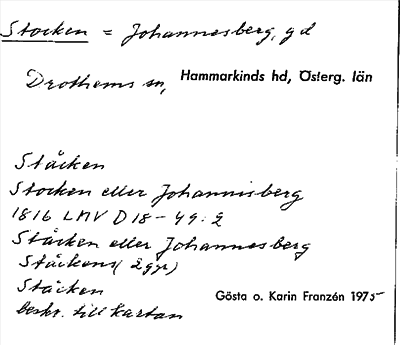 Stocken = Johannesberg, gd
Drothems sn, Hammarkinds hd, Österg. län
Ståcken
Stocken eller Johannisberg
1816 LMV D18-49:2
Ståcken eller Johannesberg
Ståckens (2 ggr)
Ståcken
beskr. till kartan
Gösta o. Karin Franzén 1975